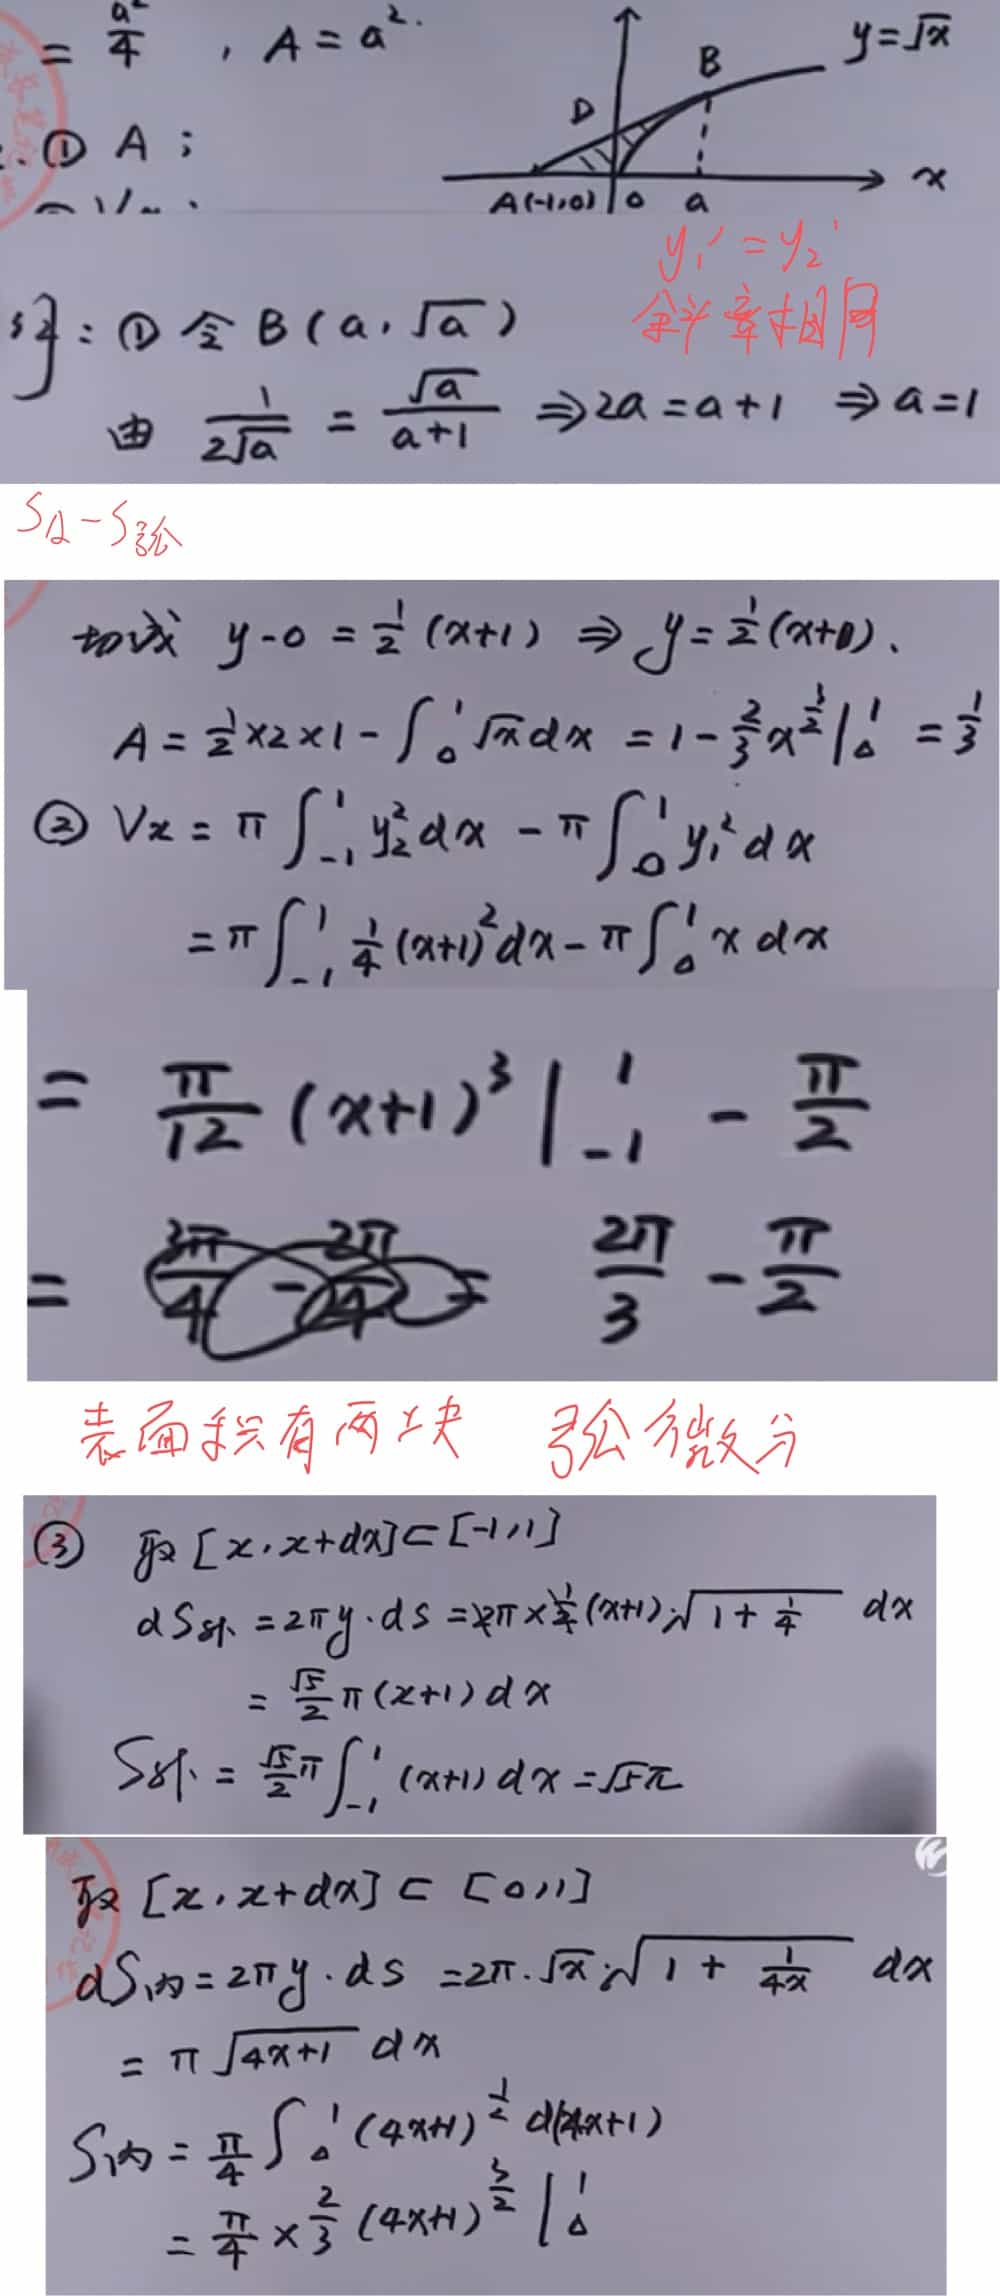 = a²/4 , A = a².
y=√x
B
D
① A ;
x
A(-1,0) 0 a
y₁' = y₂'
斜率相同
解: ① 令 B(a, √a)
由 1/(2√a) = √a/(a+1) ⇒ 2a = a+1 ⇒ a=1
S△ - S弧
切线 y-0 = 1/2 (x+1) ⇒ y = 1/2 (x+1).
A = 1/2 ×2×1 - ∫₀¹ √x dx = 1 - 2/3 x^(3/2) |₀¹ = 1/3
② Vx = π ∫₋₁¹ y₂² dx - π ∫₀¹ y₁² dx
= π ∫₋₁¹ 1/4 (x+1)² dx - π ∫₀¹ x dx
= π/12 (x+1)³ |₋₁¹ - π/2
= 2π/3 - π/2
表面积有两块 弧微分
③ 取 [x, x+dx] ⊂ [-1,1]
dS外 = 2πy·ds = 2π × 1/2 (x+1)·√(1 + 1/4) dx
= √5/2 π (x+1) dx
S外 = √5/2 π ∫₋₁¹ (x+1) dx = √5π
取 [x, x+dx] ⊂ [0,1]
dS内 = 2πy·ds = 2π·√x·√(1 + 1/4x) dx
= π √(4x+1) dx
S内 = π/4 ∫₀¹ (4x+1)^(1/2) d(4x+1)
= π/4 × 2/3 (4x+1)^(3/2) |₀¹